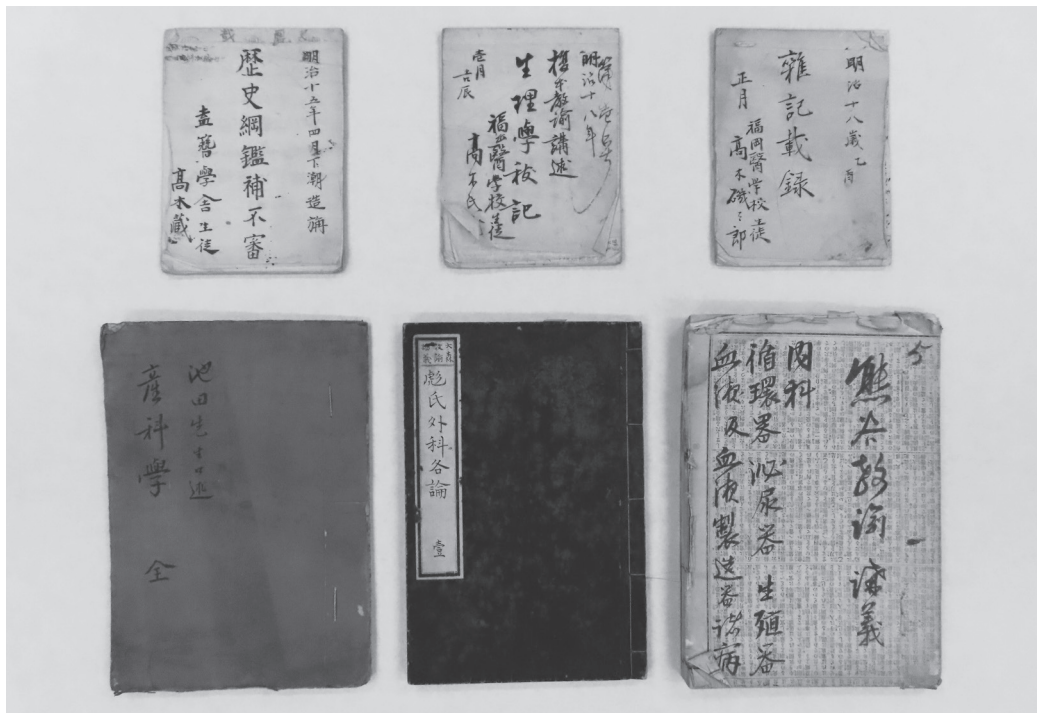 明治十五年四月下潮造講
歴史綱鑑補不審
盍簪學舎生徒
髙木藏
明治十八年
教諭講述
生理學被記
壱月
吉辰
福岡醫学校生徒
高木氏
明治十八歳乙酉
雜記載録
正月
福岡醫学校生徒
高木磯三郎
池田先生口述
産科學 全
彪氏外科各論 壹
熊谷教諭講義
内科
循環器 泌尿器 生殖器
血液及血液製造器諸病